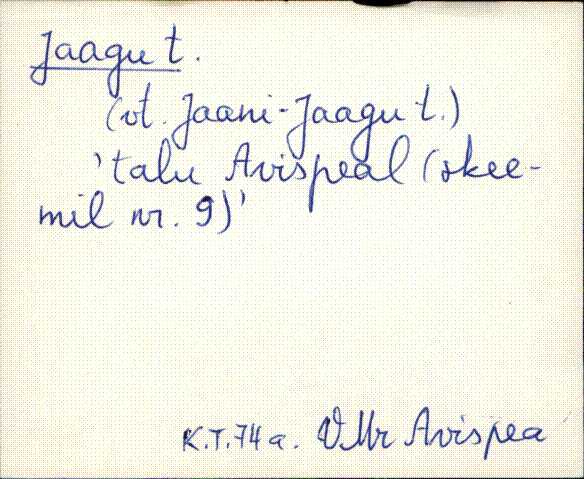 Jaagu t.
(vt. Jaani-Jaagu t.)
'talu Avispeal (skee-
mil nr. 9)'
K.T.74 a. VMr Avispea